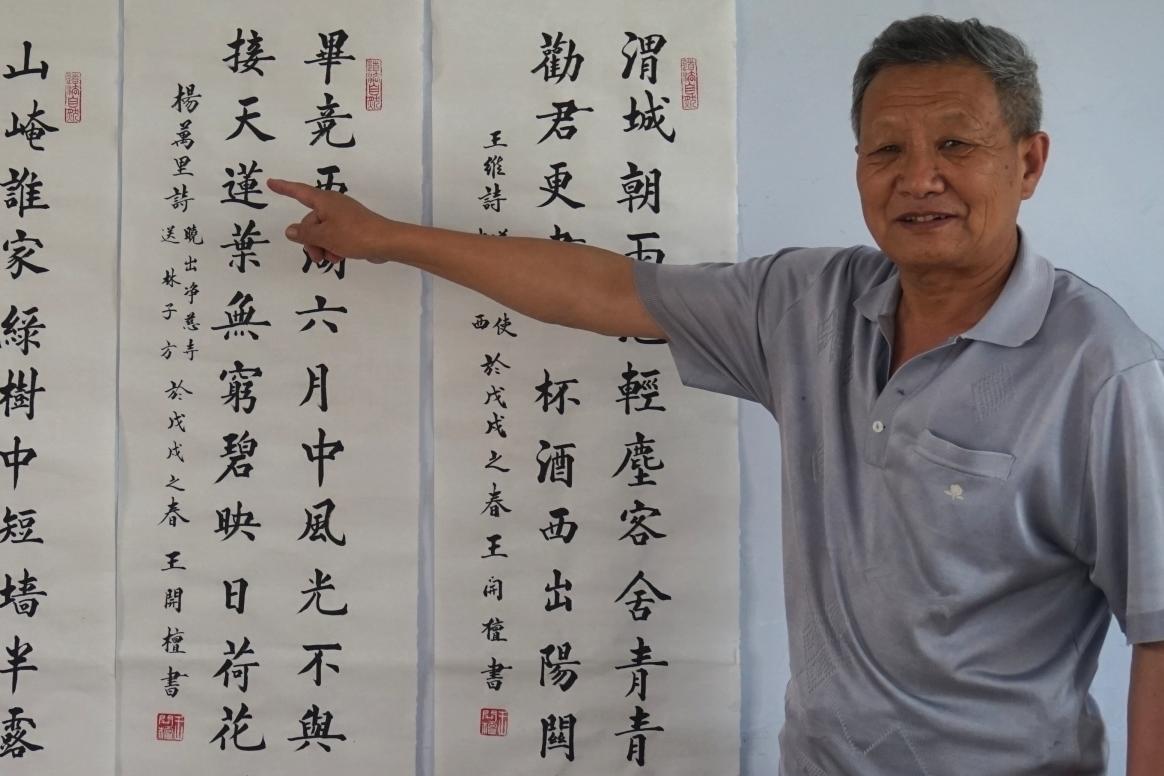 渭城朝雨輕塵客舍青青
勸君更杯酒西出陽關
王維詩
使
西
於戊戌之春王開檀書
畢竟西湖六月中風光不與
接天蓮葉無窮碧映日荷花
楊萬里詩
曉出净慈寺
送林子方
於戊戌之春王開檀書
山崦誰家綠樹中短墙半露